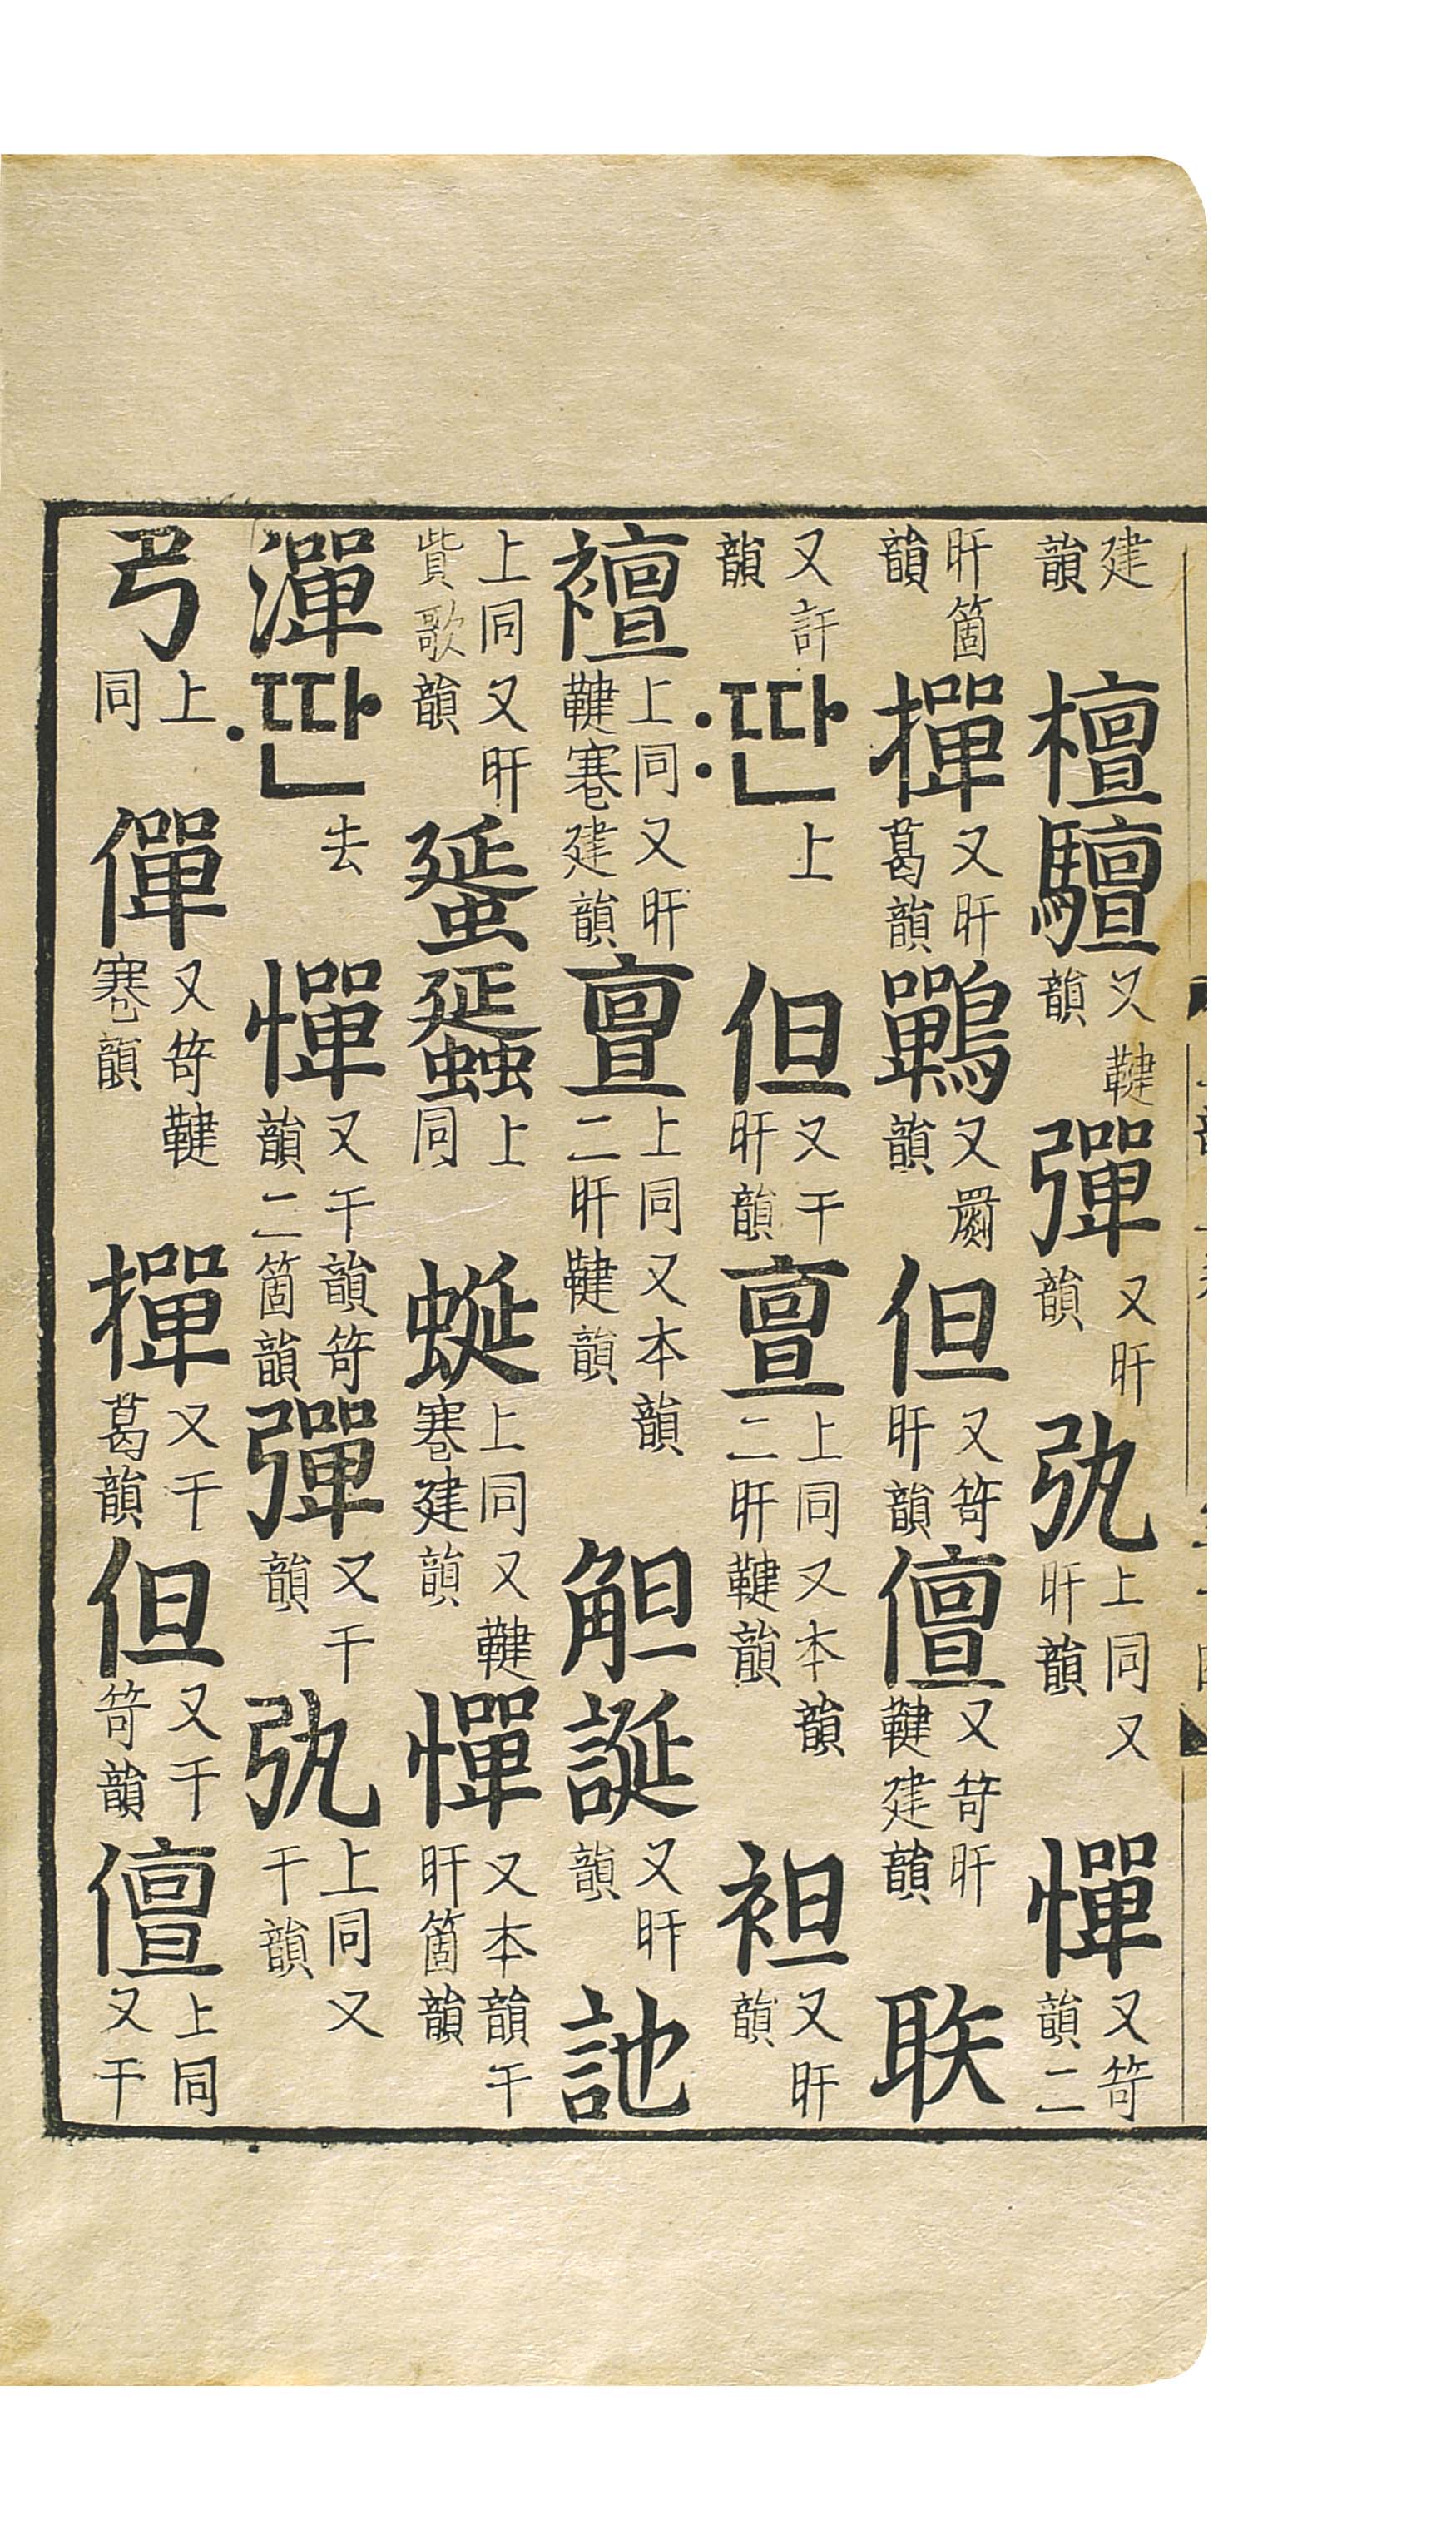 建韻檀驙又鞬韻彈又旰韻𢎫上同又旰韻憚又笴韻二
旰箇韻撣又旰葛韻鷤又罽韻但又笴旰韻儃又笴旰鞬建韻
又訐韻〯딴上但又干旰韻亶上同又本韻二旰鞬韻袒又旰韻
襢上同又旰鞬寋建韻亶上同又本韻二旰鞬韻觛誕又旰韻訑
上同又旰貲歌韻蜑上同蜒上同又鞬寋建韻憚又本韻干旰箇韻
潬〮딴去憚又干韻笴韻二箇韻彈又干韻𢎫上同又干韻
上同僤又笴鞬寋韻撣又干葛韻但又干笴韻儃上同又干